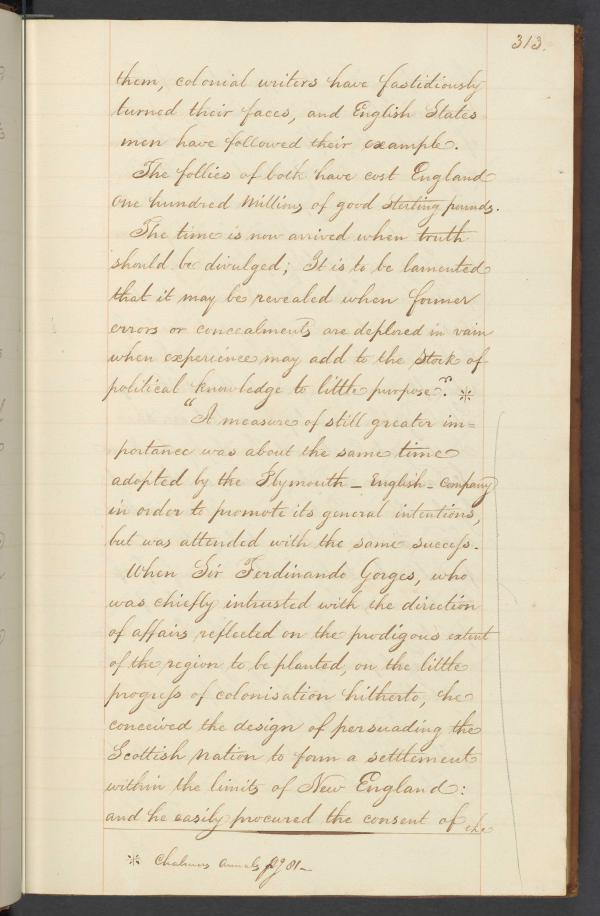 313.
them, colonial writers have fastidiously
turned their faces, and English States
men have followed their example.
The follies of both have cost England
One hundred Millions of good Sterling pounds.
The time is now arrived when truth
should be divulged; It is to be lamented
that it may be revealed when former
errors or concealments are deplored in vain
when experience may add to the Stock of
political knowledge to little purpose". *
"A measure of still greater im=
portance was about the same time
adopted by the Plymouth - English - Company
in order to promote its general intentions,
but was attended with the same success.
When Sir Ferdinando Gorges, who
was chiefly intrusted with the direction
of affairs reflected on the prodigous extent
of the region to be planted, on the little
progress of colonisation hitherto, he
conceived the design of persuading the
Scottish Nation to form a settlement
within the limits of New England:
and he easily procured the consent of the
* Chalmers Annals pg 81-